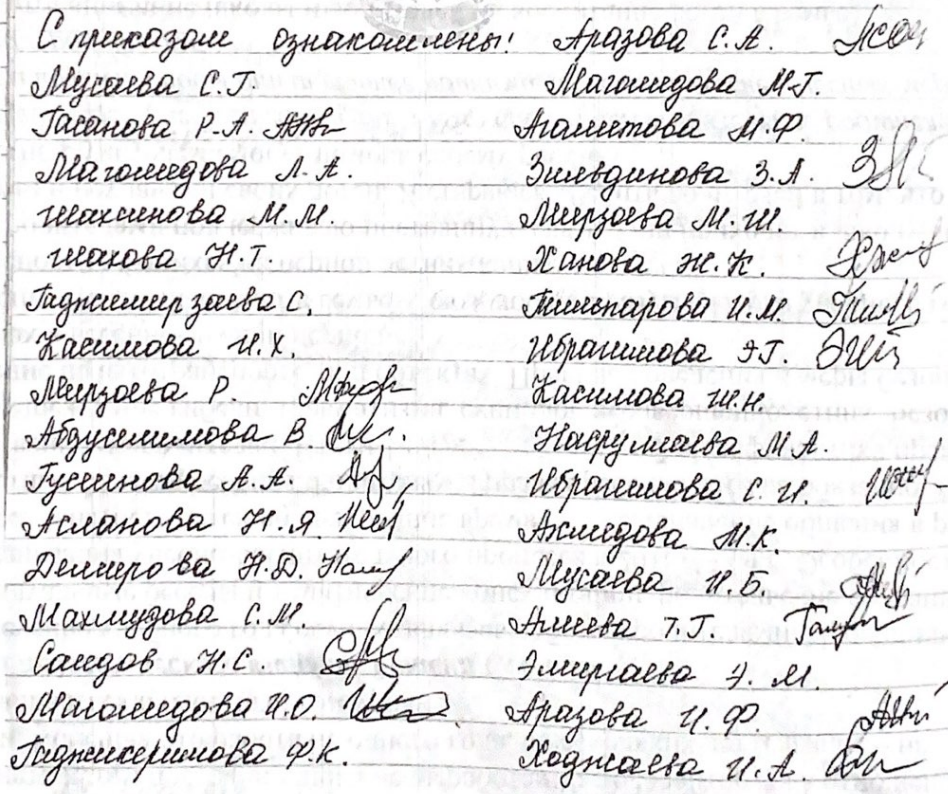 С приказом ознакомлены:
Мусаева С.Г.
Гасанова Р.А.
Магомедова Л.А.
Шахсинова М.М.
Шахова Н.Т.
Гаджимирзаева С.
Касимова И.Х.
Мирзаева Р.
Абдуселимова В
Гусейнова А.А.
Асланова Н.Я
Демирова Н.Д.
Махмудова С.М.
Саидов Н.С.
Магомедова И.О.
Гаджикеримова Ф.К.
Аразова С.А.
Магомедова М.Г.
Агаметова М.Ф
Зильдинова З.Л.
Мирзаева М.Ш.
Ханова Ж.К.
Тимпарова И.М.
Ибрагимова Э.Г.
Касимова Ш.Н.
Насрулаева М.А.
Ибрагимова С.И.
Ахмедова М.К
Мусаева И.Б.
Алиева Т.Г.
Эмиргаева Э.М.
Аразова И.Ф
Ходжаева И.А.